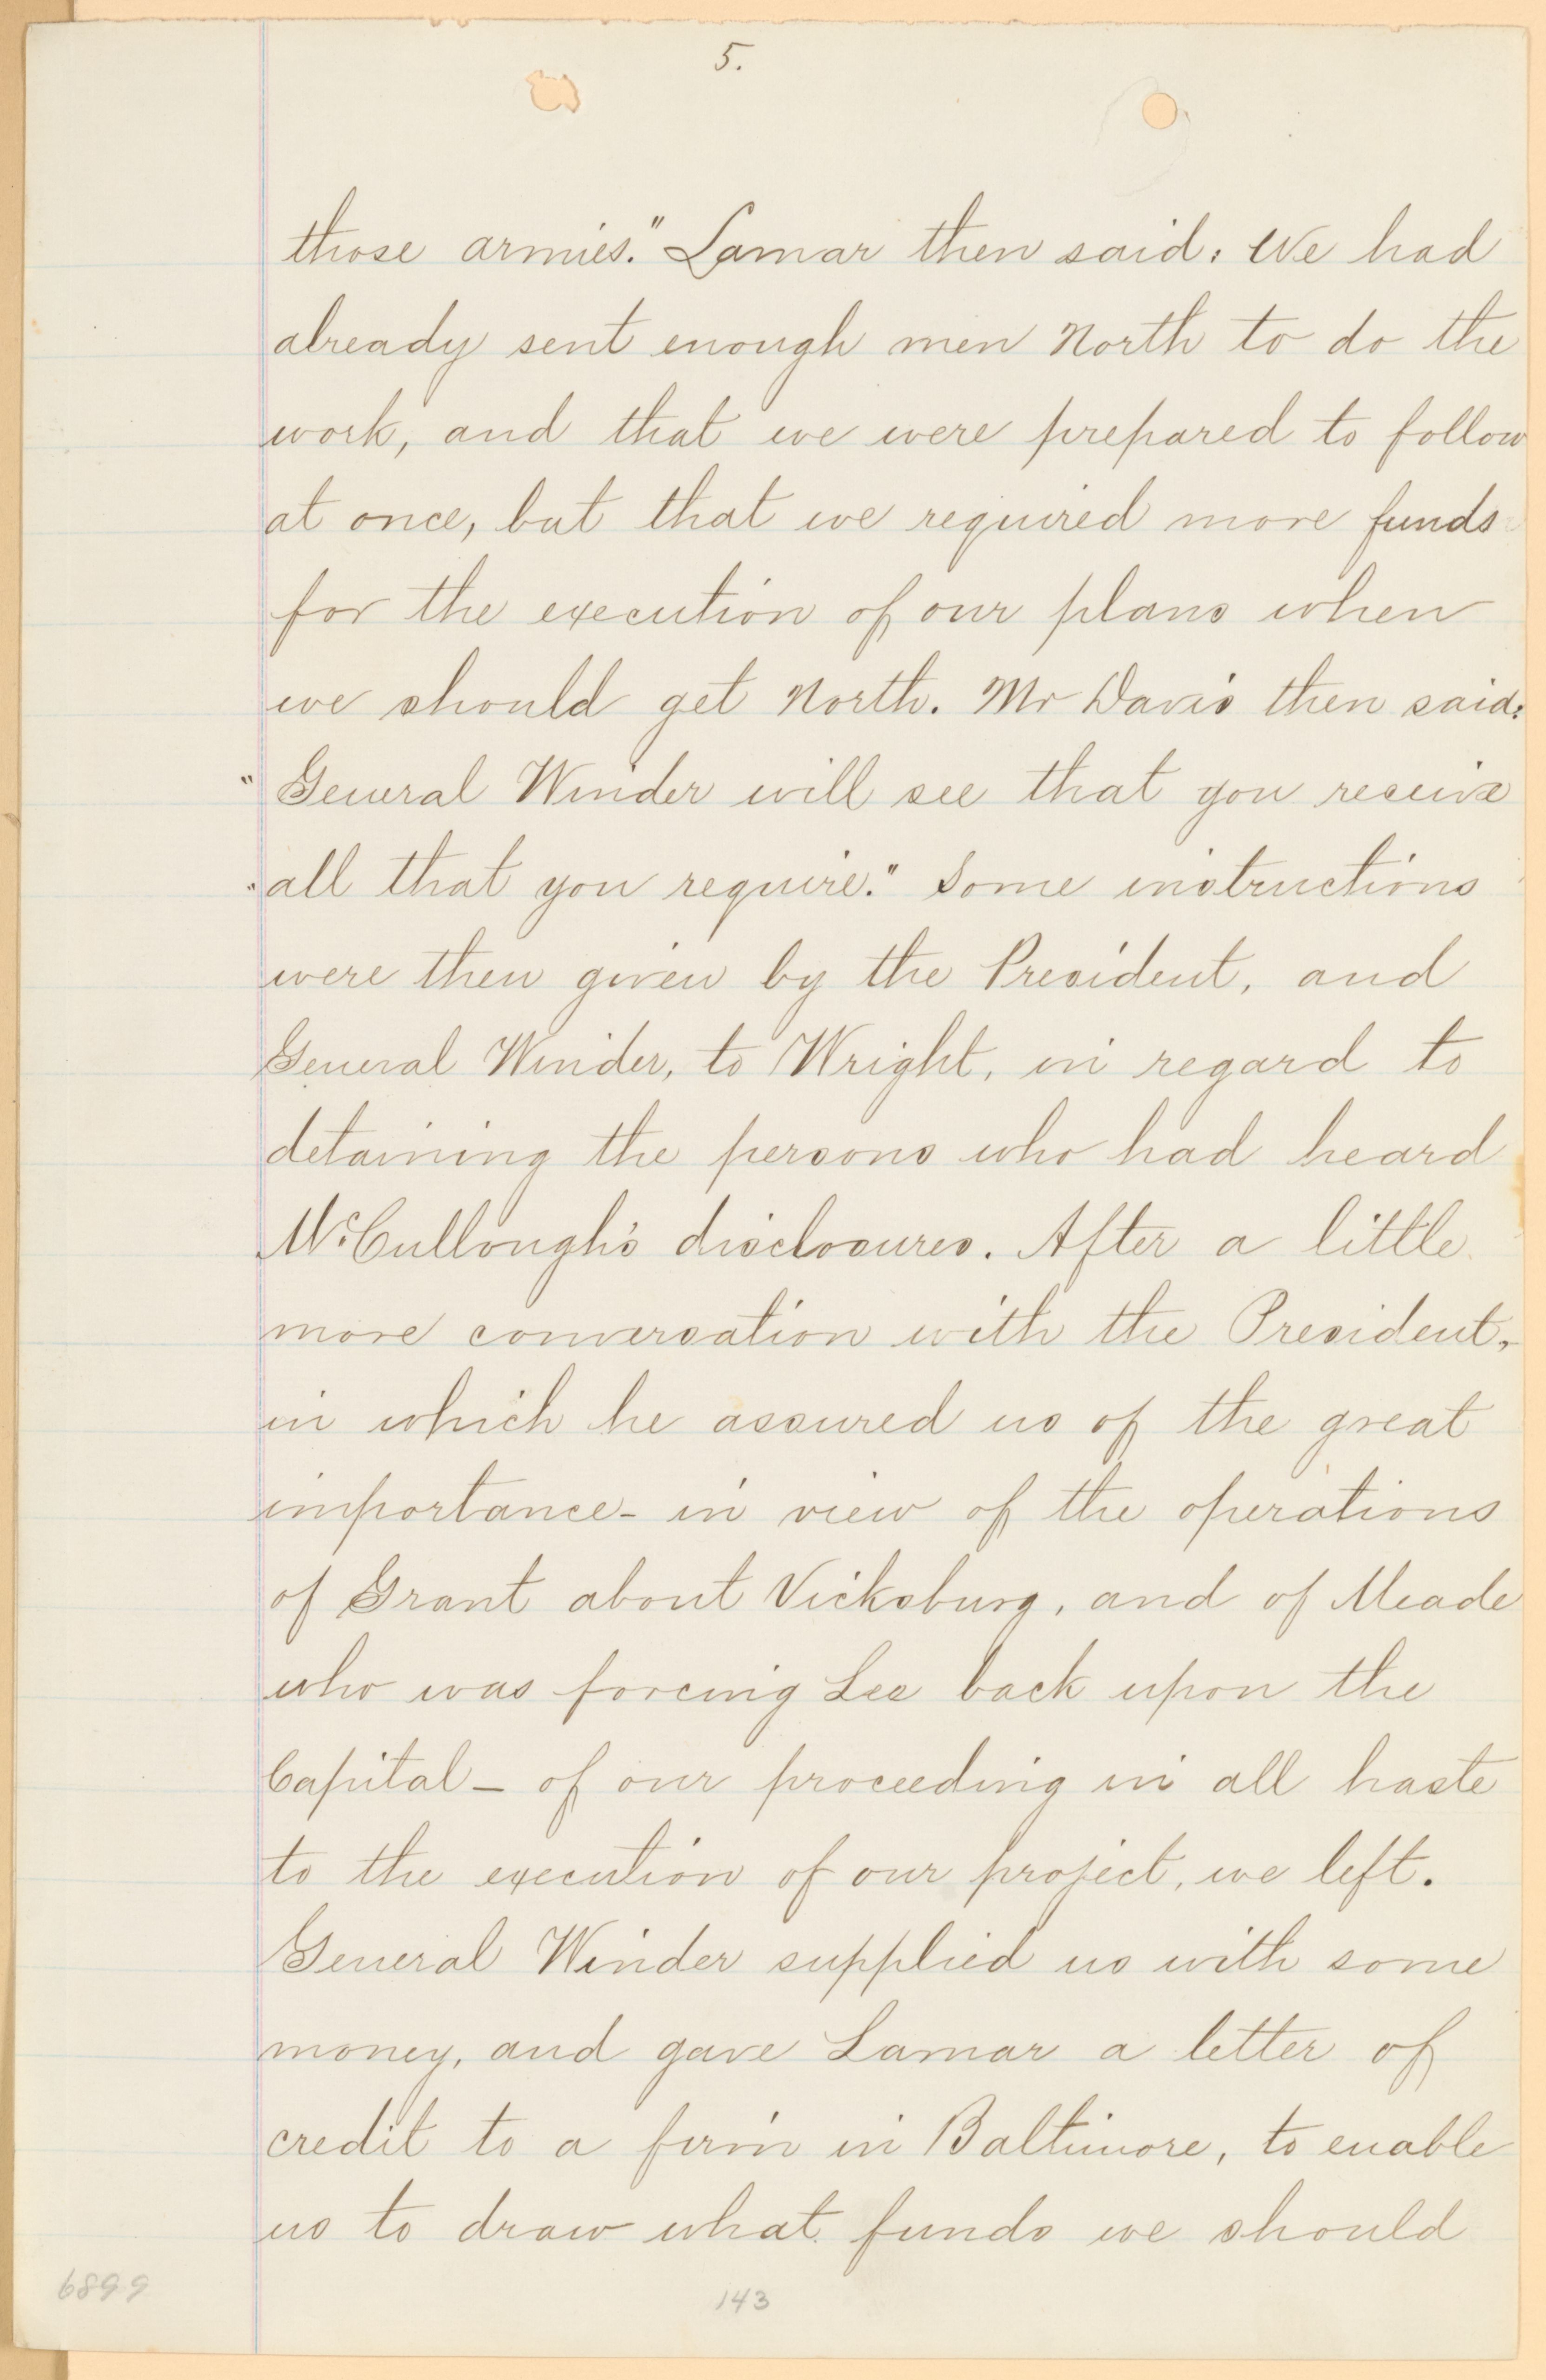 5.
those armies." Lamar then said: We had
already sent enough men North to do the
work, and that we were prepared to follow
at once, but that we required more funds
for the execution of our plans when
we should get North. Mr Davis then said:
"General Winder will see that you receive
"all that you require." Some instructions
were then given by the President, and
General Winder, to Wright, in regard to
detaining the persons who had heard
McCullough's disclosures. After a little
more conversation with the President,
in which he assured us of the great
importance - in view of the operations
of Grant about Vicksburg, and of Meade
who was forcing Lee back upon the
Capital - of our proceeding in all haste
to the execution of our project, we left.
General Winder supplied us with some
money, and gave Lamar a letter of
credit to a firm in Baltimore, to enable
us to draw what funds we should
6899
143